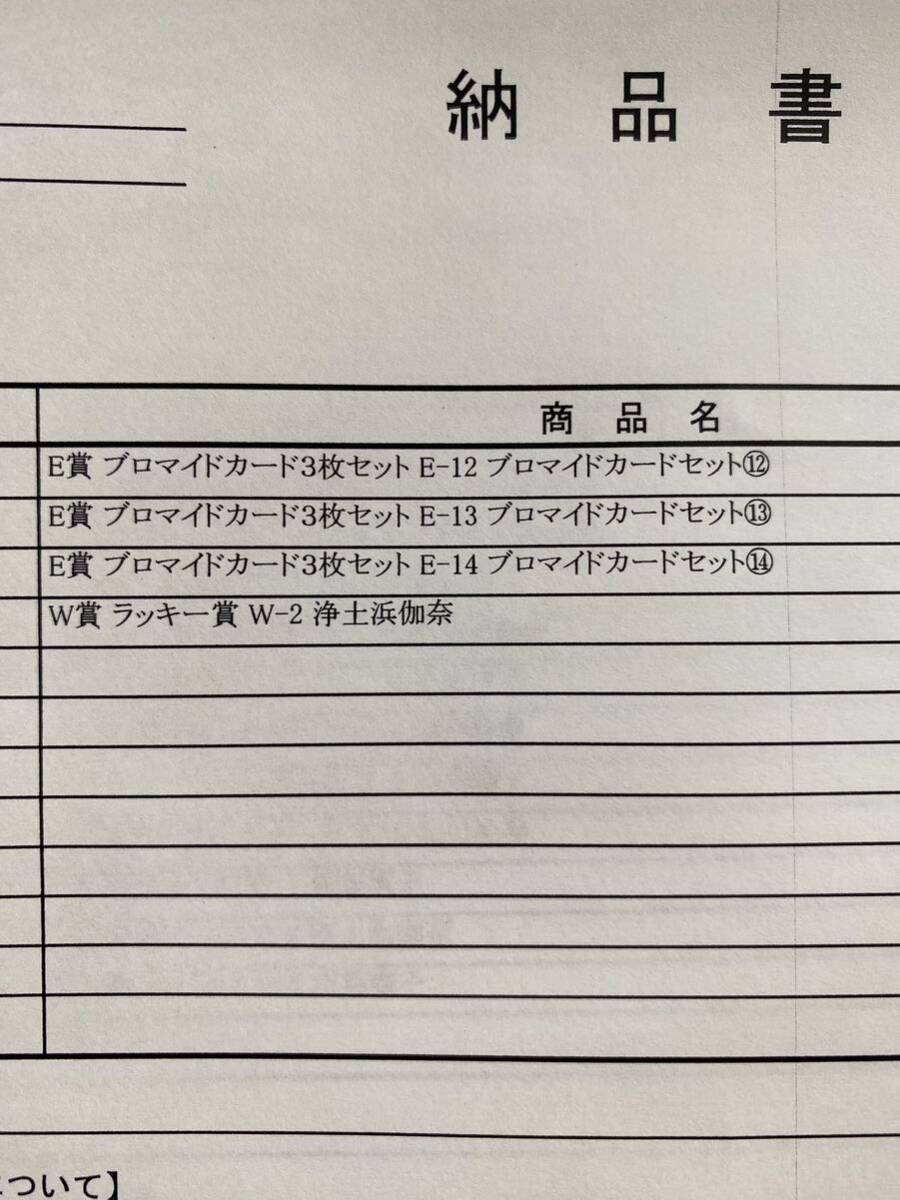 納品書
商品名
E賞 ブロマイドカード3枚セット E-12 ブロマイドカードセット⑫
E賞 ブロマイドカード3枚セット E-13 ブロマイドカードセット⑬
E賞 ブロマイドカード3枚セット E-14 ブロマイドカードセット⑭
W賞 ラッキー賞 W-2 浄土浜伽奈
について】